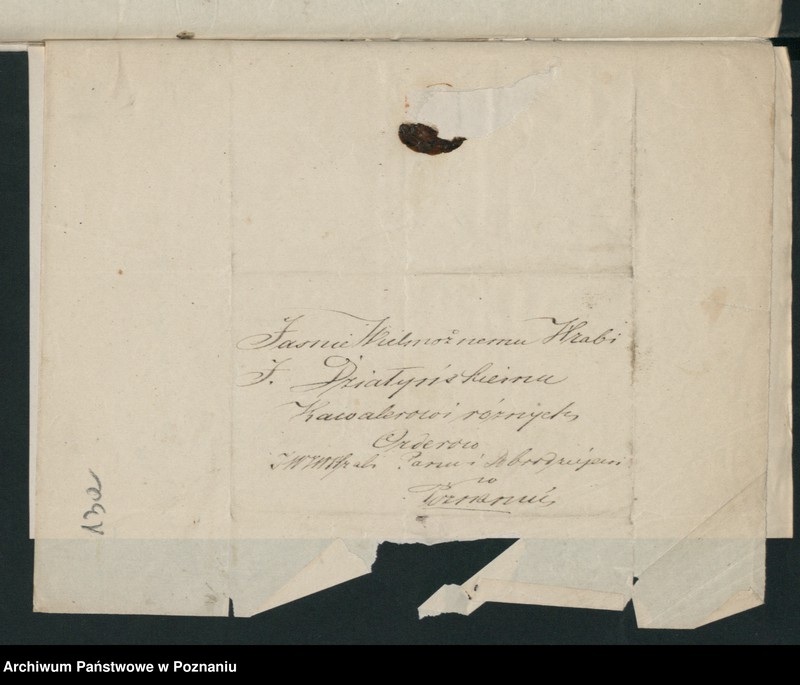 Jasnie Wielmożnemu Hrabi
J. Działyńskiemu
Kawalerowi różnych
Orderow
Hrabi Panu i Dobrodziejowi
w
Poznaniu
13a
Archiwum Państwowe w Poznaniu